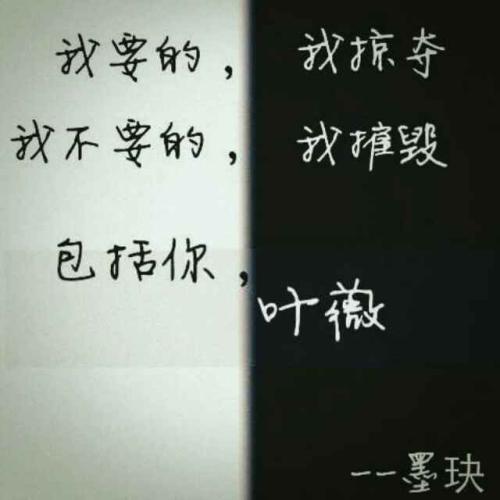 我要的，我掠夺
我不要的，我摧毁
包括你，
叶薇
——墨玦